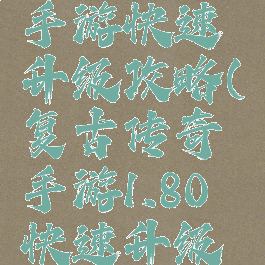 手游快速
升级攻略(
复古传奇
手游1.80
快速升级